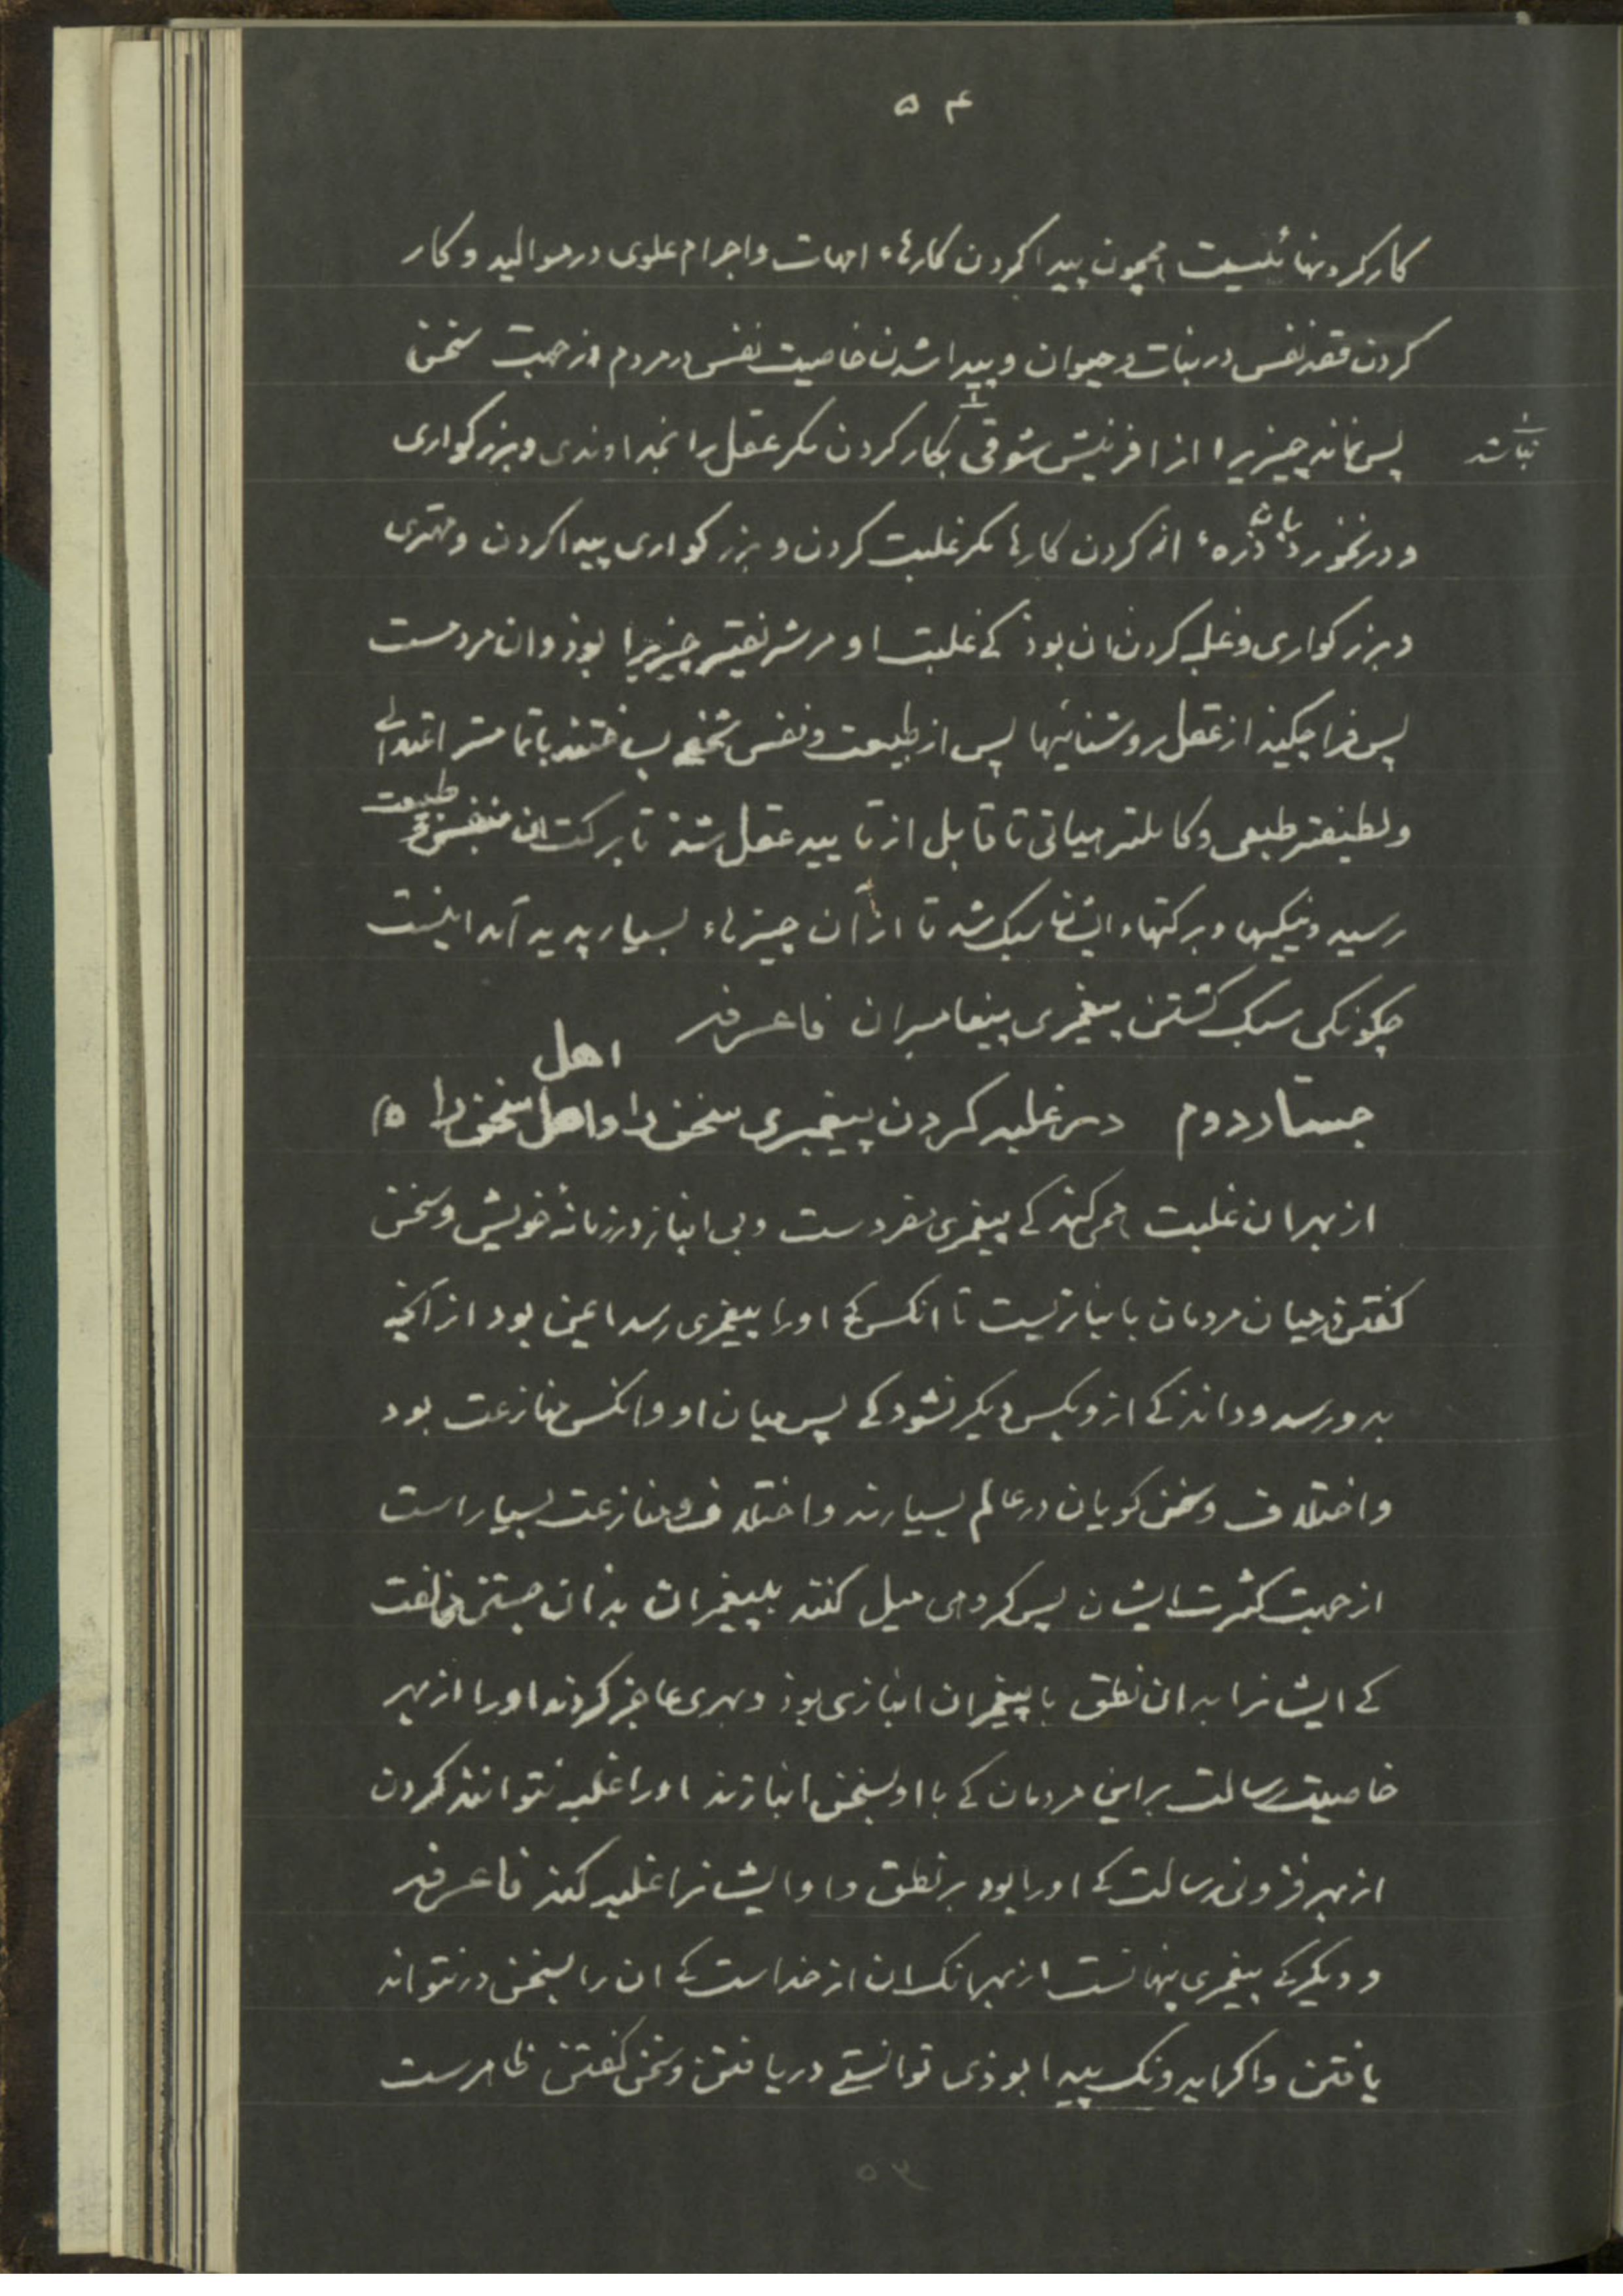 ۵۴
کار کرد نهائیست همچون پیدا کردن کارهاء امهات و اجرام علوی در موالید و کار
کردن قصد نفس در نبات و حیوان و پیدا شدن خاصیت نفس در مردم از جهت سخن
پس نماند چیزیرا از افرینش شوقی بکار کردن مکر عقل را بخداوندی و بزرکواری
نباشد
و درنخورد انه کردن کارها مکر غلبت کردن و بزرکواری پیدا کردن و مهتری
و بزرکواری و غلبه کردن ان بوذ کے غلبت او مر شریفتر چیزیرا بوذ و ان مردمست
پس فرا چکیذ از عقل روشنائیها پس از طبیعت و نفس شخصے باتمامتر اعتدالے
و لطیفتر طبعی و کاملتر هیاتی تا قابل از تایید عقل شذ تا برکت ان
طبیعت
رسید و نیکیها و برکتهاء ایشان سبک شد تا از آن چیزهاء بسیار پدید آمد اینست
چکونکی سبک کشتن پیغمبری پیغامبران فاعرفه
اهل
جستار دوم در غلبه کردن پیغمبری سخن را و اهل سخن را
از بهر ان غلبت همی کند کے پیغمبری مفردست و بی انباز در زمانهٔ خویش و سخن
کفتن در میان مردمان بانبازیست تا انکس کے او را پیغمبری رسد ایمن بود از آنچه
بدو رسد و داند کے از و بکس دیکر نشود کے پس میان او و انکس منازعت بود
و اختلاف و سخن کویان در عالم بسیارند و اختلاف و منازعت بسیار است
از جهت کثرت ایشان پس کروهی میل کنند بپیغمبران بذان جستن مخالفت
کے ایشانرا بدان نطق با پیغمبران انبازی بوذ و بهری عاجز کردند او را از بهر
خاصیت رسالت بر این مردمان کے با او بسخن انبازند او را غلبه نتوانند کردن
از بهر فزونی رسالت کے او را بود بر نطق و او ایشانرا غلبه کند فاعرفه
و دیکر کے پیغمبری پنهانست از بهر انک ان از خداست کے ان را بسخن در نتواند
یافتن و اکر ایدونک پیدا بوذی توانستے دریافتن و سخن کفتن ظاهرست